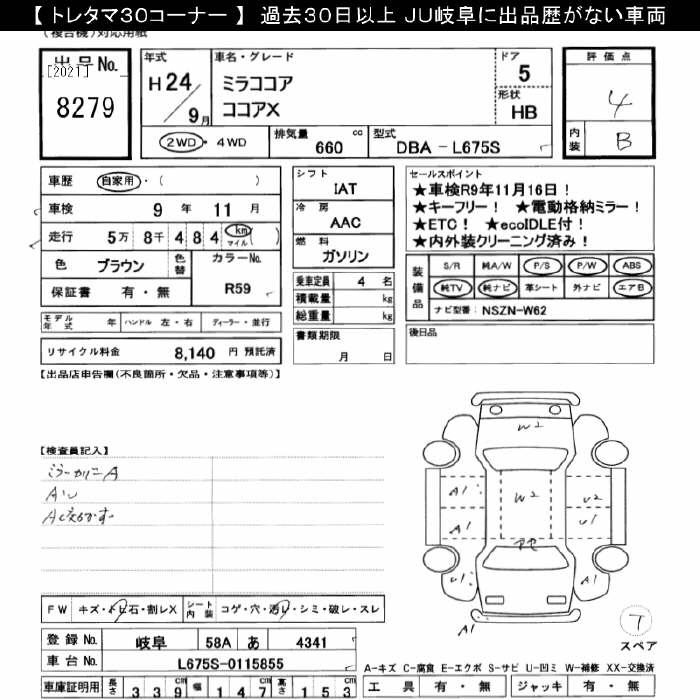 【 トレタマ30コーナー 】 過去30日以上 JU岐阜に出品歴がない車両
(複合機)対応用紙
出品No.
[2021]
8279
年式
H 24/9月
車名・グレード
ミラココア
ココアX
ドア
5
形状
HB
2WD・4WD
排気量 cc
660
型式
DBA - L675S
評価点
4
内装
B
車歴 自家用・( )
車検 9年 11月
走行 5万 8千 4 8 4 km マイル ( )
色 ブラウン 色替
カラーNo.
R59
保証書 有・無
モデル年式 年 ハンドル 左・右 ディーラー・並行
リサイクル料金 8,140 円 預託済
シフト
IAT
冷房
AAC
燃料
ガソリン
乗車定員 4 名
積載量 kg
総重量 kg
書類期限
月 日
セールスポイント
★車検R9年11月16日!
★キーフリー! ★電動格納ミラー!
★ETC! ★ecoIDLE付!
★内外装クリーニング済み!
装備品
S/R 純A/W P/S P/W ABS
純TV 純ナビ 革シート 外ナビ エアB
ナビ型番: NSZN-W62
後日品
【出品店申告欄(不良箇所・欠品・注意事項等)】
【検査員記入】
A U
W2
A1 W2 U2
A1 U1
U1 A1
A1
スペア
FW キズ・トビ石・割レX シート内装 コゲ・穴・汚レ・シミ・破レ・スレ
登録No. 岐阜 58A あ 4341
車台No. L675S-0115855
車庫証明用 長さ 3 3 9 cm 幅 1 4 7 cm 高さ 1 5 3 cm
A-キズ C-腐食 E-エクボ S-サビ U-凹ミ W-補修 XX-交換済
工具 有・無 ジャッキ 有・無